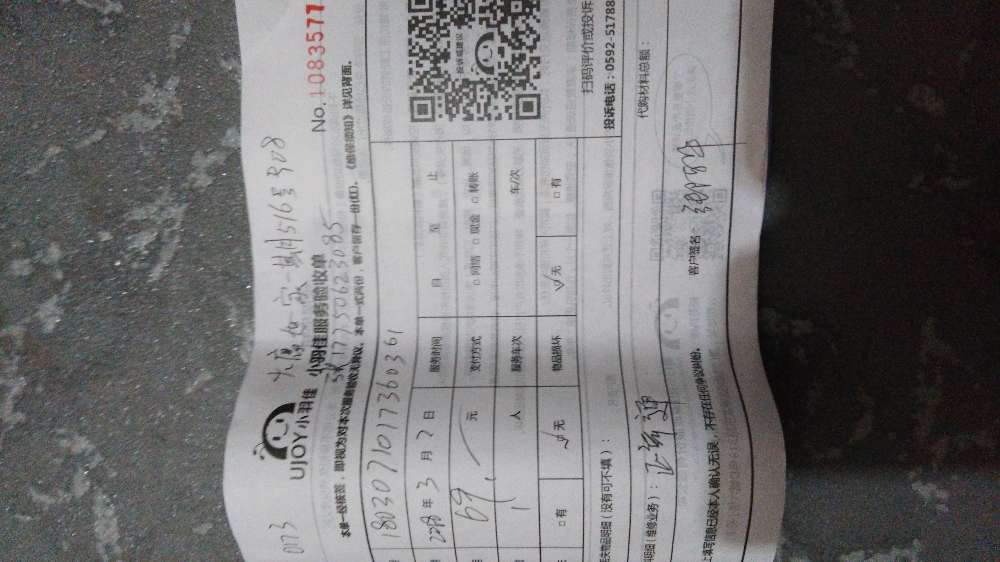 0173
508
UJOY小羽佳
小羽佳服务验收单
No.1083577
17750623085
本单一经核签，即视为对本次服务验收无异议。本单一式两份，客户留存一份(红)。《维保须知》详见背面。
1803071017360361
年 3 月 7 日
服务时间
自 至 止
69. 元
支付方式
□ 网络 □ 现金 □ 转账
1 人
服务车次
车/次
□ 有 √无
物品损坏
√无 □ 有
投诉或建议
扫码评价或投诉
投诉电话：0592-51788
物品明细（没有可不填）：
代购材料总额：
明细（维修业务）：
客户签名：
上填写信息已经本人确认无误，不存在任何争议纠纷。